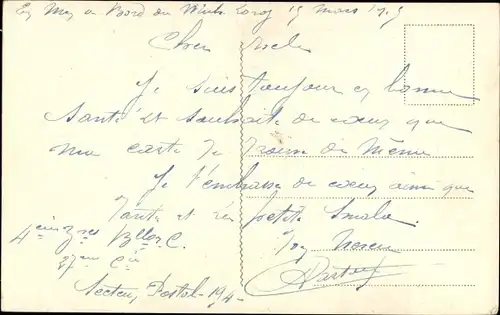 En Mer a Bord du            15 mars 1915
Cher oncle
Je suis toujour en bonne
Santé et souhaite de cœur que
ma carte te trouve de Même
Je t'embrasse de cœur ainsi que
Tante et les petits
Ton Neveu
4eme Zres Btlon C.
37eme Cie
Secteur Postal - 194 -